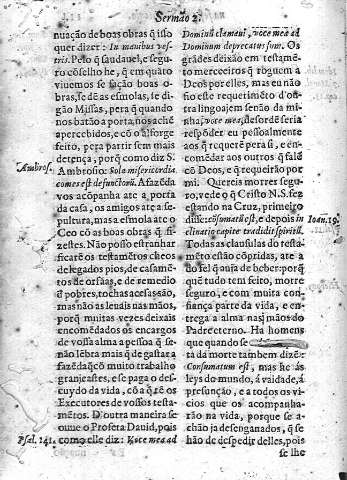 Sermão 2.
nuação de boas obras q̃ isso
quer dizer: In manibus ves-
tris. Pelo q̃ saudauel, e segu-
ro cõselho he, q̃ em quato
viuemos se fação boas o-
bras, se dẽ as esmolas, se di-
gão Missas, pera q̃ quando
nos batão a porta, nos achẽ
apercebidos, e cõ o alforge
feito, pera partir sem mais
detença, porq̃ como diz S.
Ambros. Ambrosio: Sola misericordia
comes est defunctorũ. A fazẽda
vos acõpanha atè a porta
da casa, os amigos atè a se-
pultura, mas a esmola atè o
Ceo cõ as boas obras q̃ fi-
zestes. Não posso estranhar
ficarẽ os testamẽtos cheos
de legados pios, de casamẽ-
tos de orfaãs, e de remedio
ẽ pobres, tochas acesas são,
mas não as leuais nas mãos,
porq̃ muitas vezes deixais
encomẽdados os encargos
de vossa alma a pessoa q̃ se-
não lẽbra mais q̃ de gastar a
fazẽda q̃ cõ muito trabalho
granjeastes, e se paga o des-
cuydo da vida, cõ a q̃ rẽ os
Executores de vossos testa-
mẽtos. Doutra maneira se
ouue o Profeta Dauid, pois
Psal. 141. como elle diz: Voce mea ad
Dominũ clamaui, voce mea ad
Dominum deprecatus sum. Os
grãdes deixão em testamẽ-
to merceeiros q̃ roguem a
Deos por elles, mas eu não
fio este requerimẽto d'ou-
tra lingoajem senão da mi-
nha, voce mea, desordẽ seria
respõder eu pessoalmente
aos q̃ requerẽ pera si, e en-
comẽdar aos outros q̃ falẽ
cõ Deos, e q̃ requeirão por
mi. Quereis morrer segu-
ro, vede o q̃ Cristo N. S. fez
estando na Cruz, primeiro
disse: cõsumatũ est, e depois in Ioan. 19.
clinatio capite tradidit spiritũ.
Todas as clausulas do testa-
mẽto estão cõpridas, atè a
do fel q̃ auia de beber: porq̃
que tudo tem feito, morre
seguro, e com muita con-
fiança parte da vida, e en-
trega a alma nas mãos do
Padre eterno. Ha homens
que quando se
ta da morte tambem dizẽ:
Consumatum est, mas he ás
leys do mundo, á vaidade, á
presunção, e a todos os vi-
cios que os acompanha-
rão na vida, porque se a-
chão ja desenganados, q̃ se
hão de despedir delles, pois
se lhe